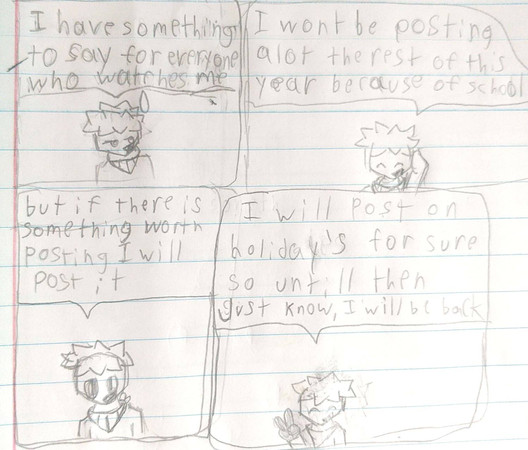 I have something
to say for everyone
who watches me
I wont be posting
alot the rest of this
year because of school
but if there is
something worth
posting I will
post it
I will post on
holiday's for sure
so untill then
Just know, I will be back